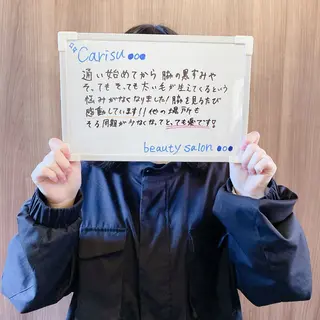 Carisu
通い始めてから 脇の黒ずみや
そってもそっても太い毛が生えてくるという
悩みがなくなりました!脇を見るたび
感動しています!!他の場所も
そる回数が少なくなって、とっても楽です?
beauty salon